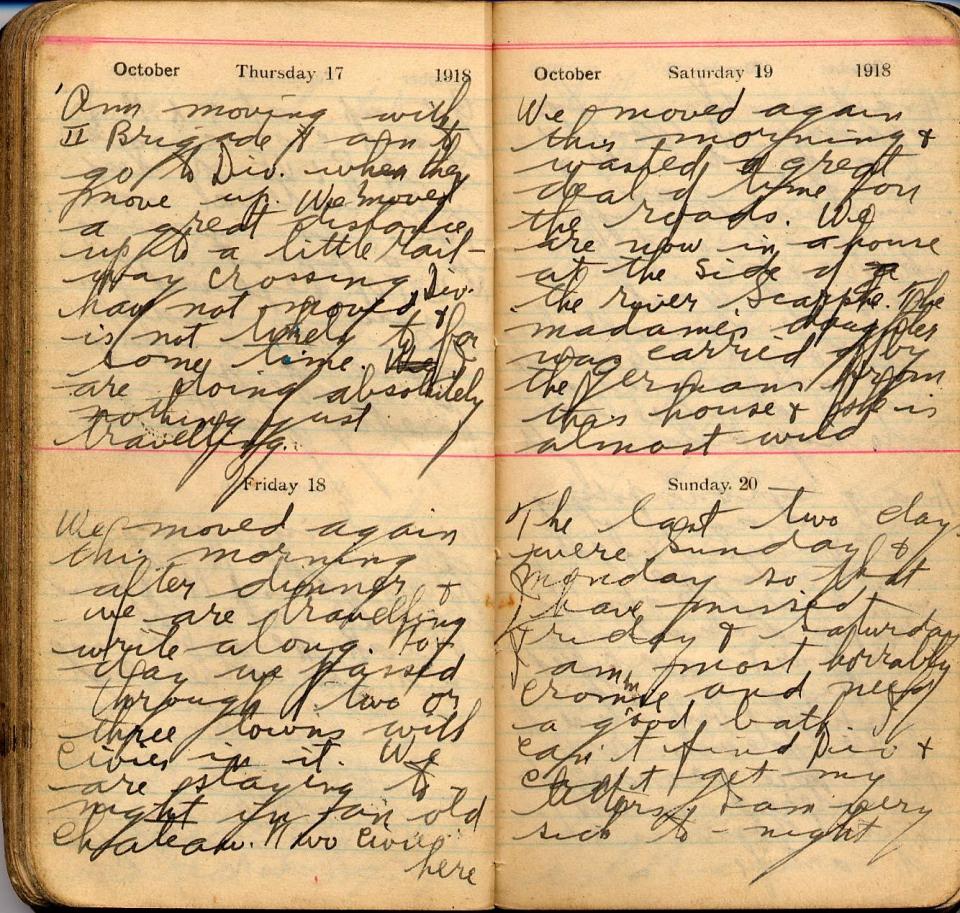 October Thursday 17 1918
Am moving with
II Brigade & am to
go to Div. when they
move up. We moved
a great distance
up to a little rail-
way crossing. Div.
hav not moved &
is not likely to for
some time. We
are doing absolutely
nothing just
travelling.
Friday 18
We moved again
this morning
after dinner &
we are travelling
write along. To-
day we passed
through two or
three towns with
Civies in it. We
are staying to-
night in an old
Chateau. Two Civies
here
October Saturday 19 1918
We moved again
this morning &
wasted a great
deal of time on
the roads. We
are now in a house
at the side of
the river Scarpe. The
madame's daughter
was carried off by
the germans from
this house & she is
almost wild
Sunday. 20
The last two days
were Sunday &
Monday so that
I have missed
Friday & Saturday
I am most horrably
and need
a good bath. I
can't find Div &
can't get my
letters. I am very
sick to-night